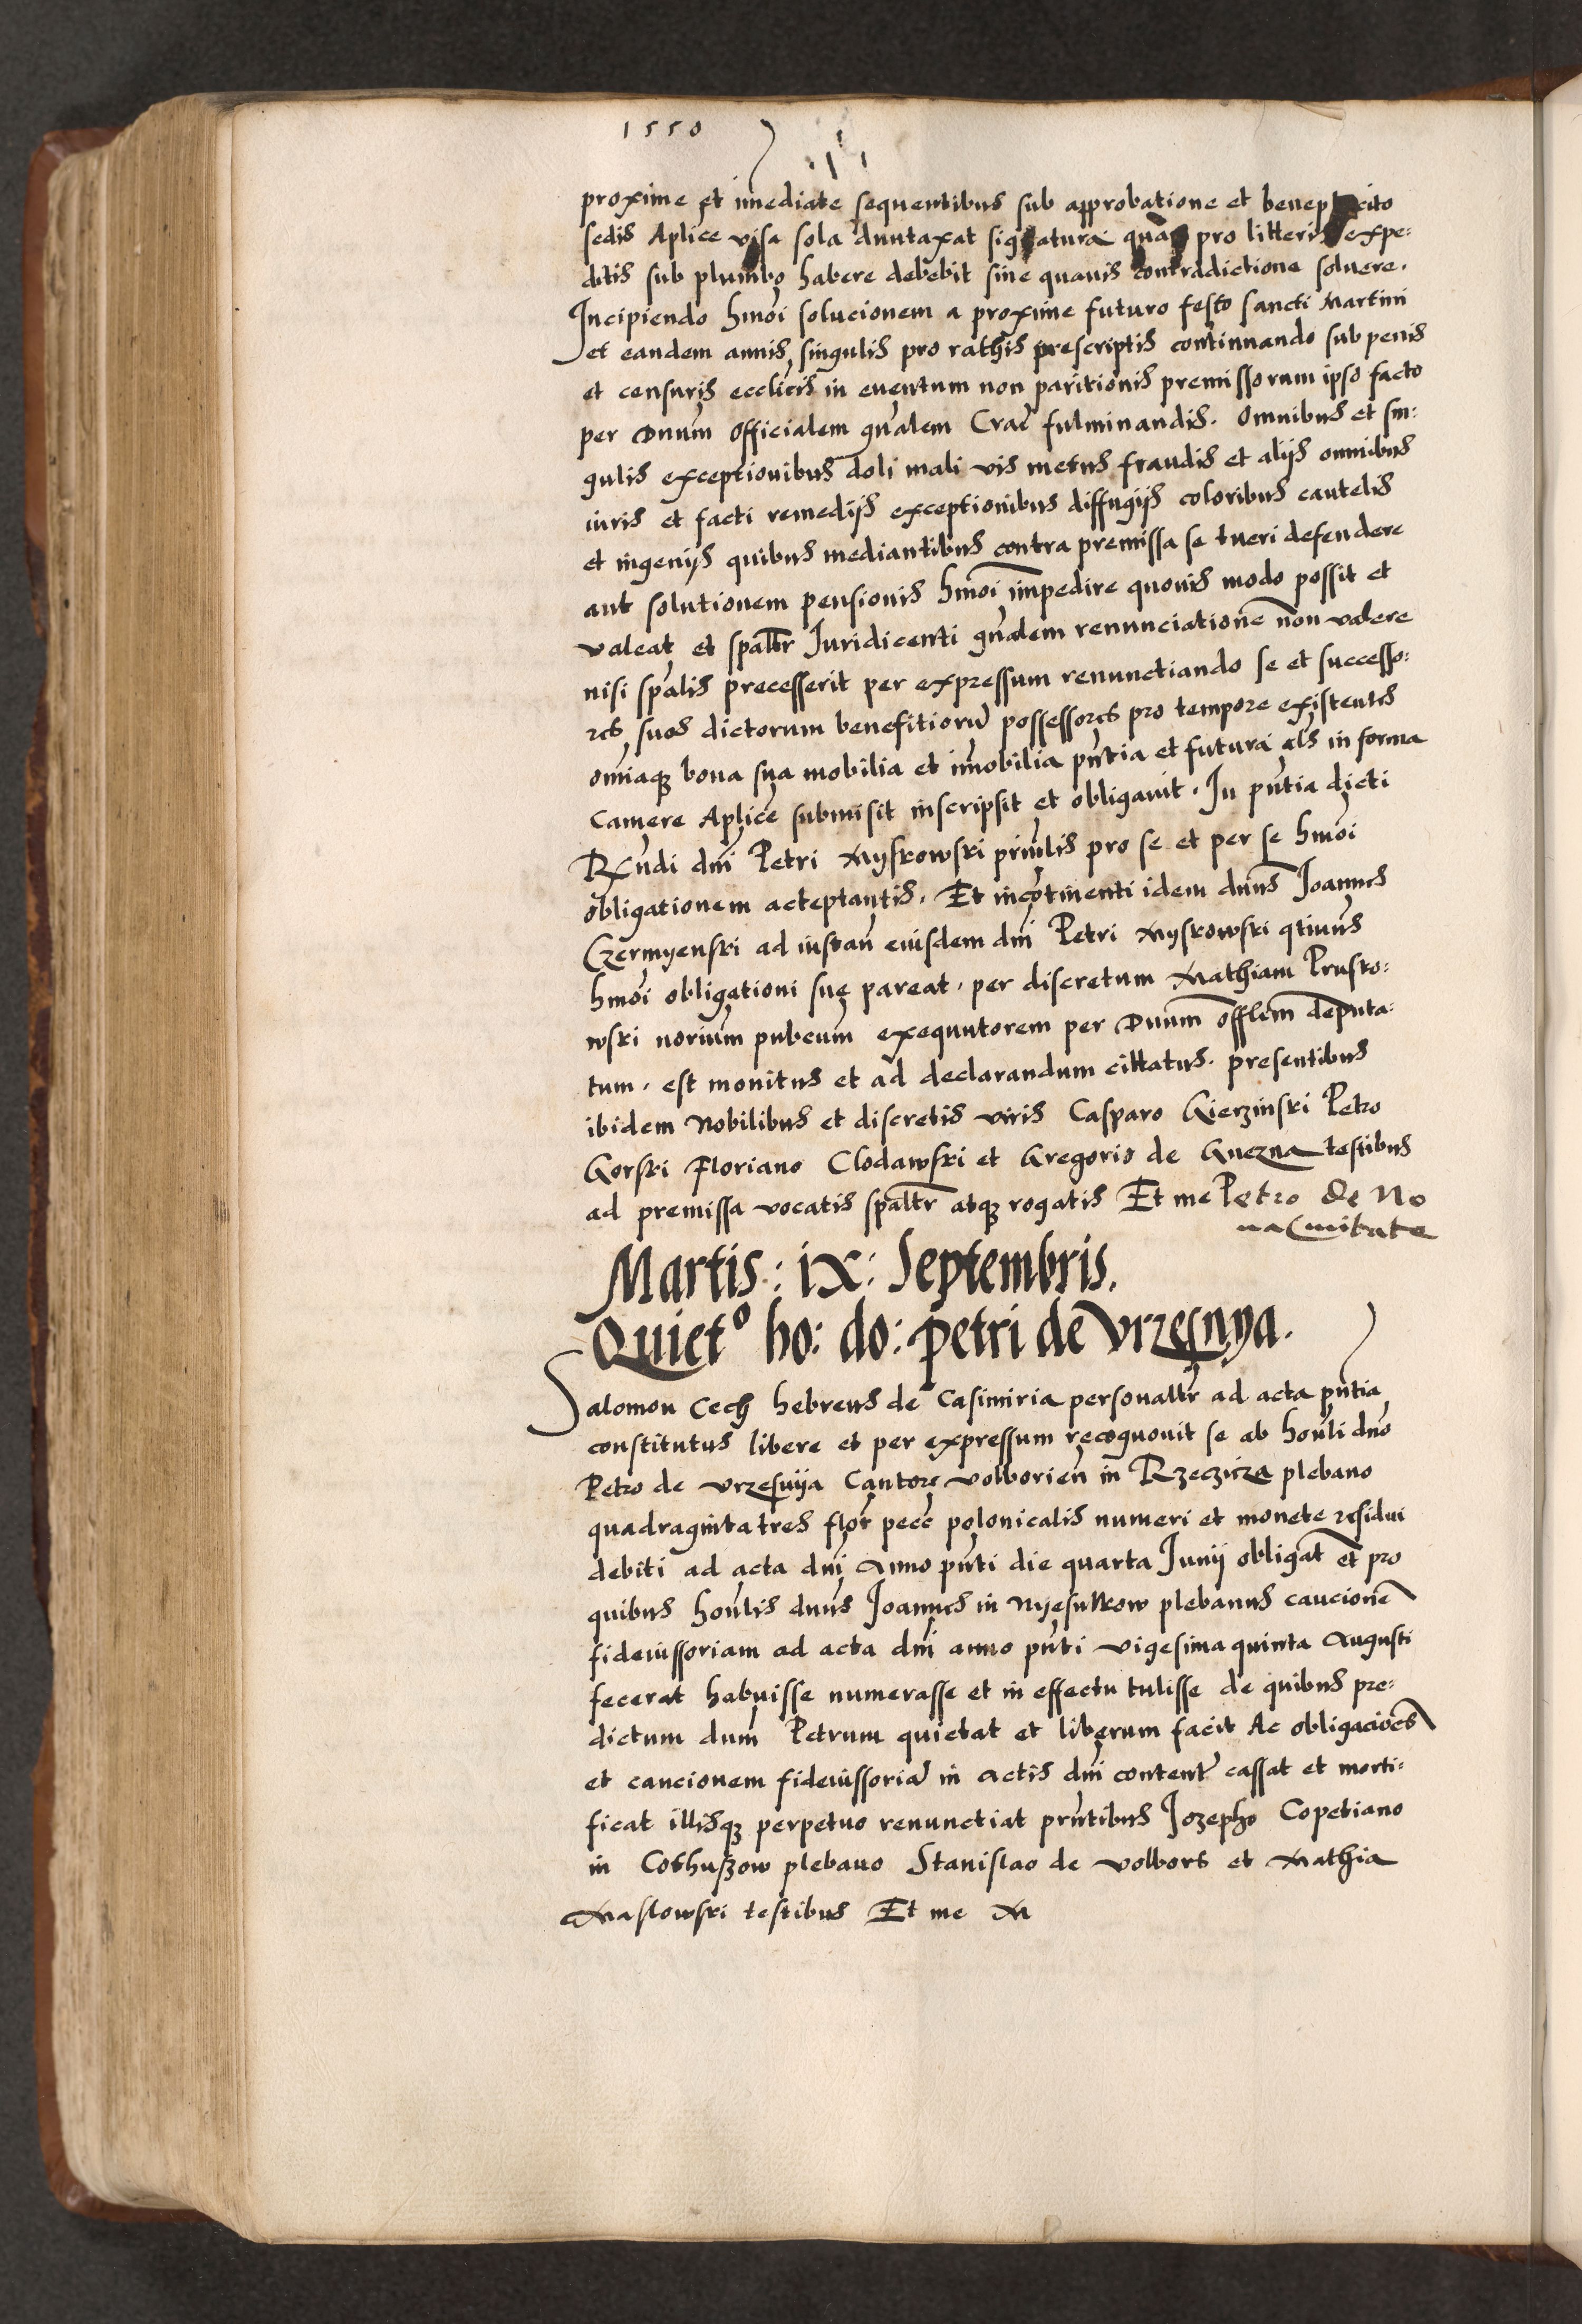 1550
proxime et imediate sequentibus sub approbatione et beneplacito
sedis Aplice visa sola duntaxat signatura quam pro litteris expe:
ditis sub plumbo habere debebit sine quavis contradictione soluere.
Incipiendo hmoi solucionem a proxime futuro festo sancti Martini
et eandem annis singulis pro rathis prescriptis continuando sub penis
et censuris ecclicis in euentum non paritionis premissorum ipso facto
per Dnum Officialem gnalem Crac fulminandis. Omnibus et sin:
gulis exceptionibus doli mali vis metus fraudis et alijs omnibus
iuris et facti remedijs exceptionibus diffugijs coloribus cautelis
et ingenijs quibus mediantibus contra premissa se tueri defendere
aut solutionem pensionis hmoi impedire quouis modo possit et
valeat et spaltr Iuridicenti gnalem renunciatione non valere
nisi spalis precesserit per expressum renunctiando se et successo:
res suos dictorum benefitioru possessores pro tempore existentes
omiaqz bona sua mobilia et imobilia pntia et futura als in forma
Camere Aplice submisit inscripsit et obligauit. In pntia dicti
Rxndi dni Petri Myskowski prinlis pro se et per se hmoi
obligationem acteptantis. Et incotinenti idem dnus Joannes
Czermyenski ad instan eiusdem dni Petri Myskowski qtinus
hmoi obligationi sue pareat. per discretum Mathiam Prusko:
wski norium pubcum exequutorem per Dnum offlem deputa:
tum. est monitus et ad declarandum cittatus. presentibus
ibidem Nobilibus et discretis viris Casparo Gierzinski Petro
Gorski Floriano Clodawski et Gregorio de Gnezna testibus
ad premissa vocatis spaltr atqz rogatis Et me Petro de No
ua Ciuitate
Martis : ix : Septembris.
Quieto ho: do: petri de Vrzesnya.
Salomon Cech hebreus de Casimiria personaltr ad acta pntia
constitutus libere et per expressum recognouit se ab honli dno
Petro de Vrzesnija Cantore Volborien in Rzeczicza plebano
quadraginta tres flor pecc polonicalis numeri et monete residui
debiti ad acta dni Anno pnti die quarta Junij obligat et pro
quibus honlis dnus Joannes in Nyesulkow plebanus caucione
fideiussoriam ad acta dni anno pnti vigesima quinta Augusti
fecerat habuisse numerasse et in effectu tulisse de quibus pre:
dictum dum Petrum quietat et liberum facit Ac obligacioes
et caucionem fideiussoria in actis dni content cassat et morti:
ficat illisqz perpetuo renunctiat prntibus Jozepho Copetiano
in Cothuszow plebano Stanislao de Volbors et Mathia
Maslowski testibus Et me M